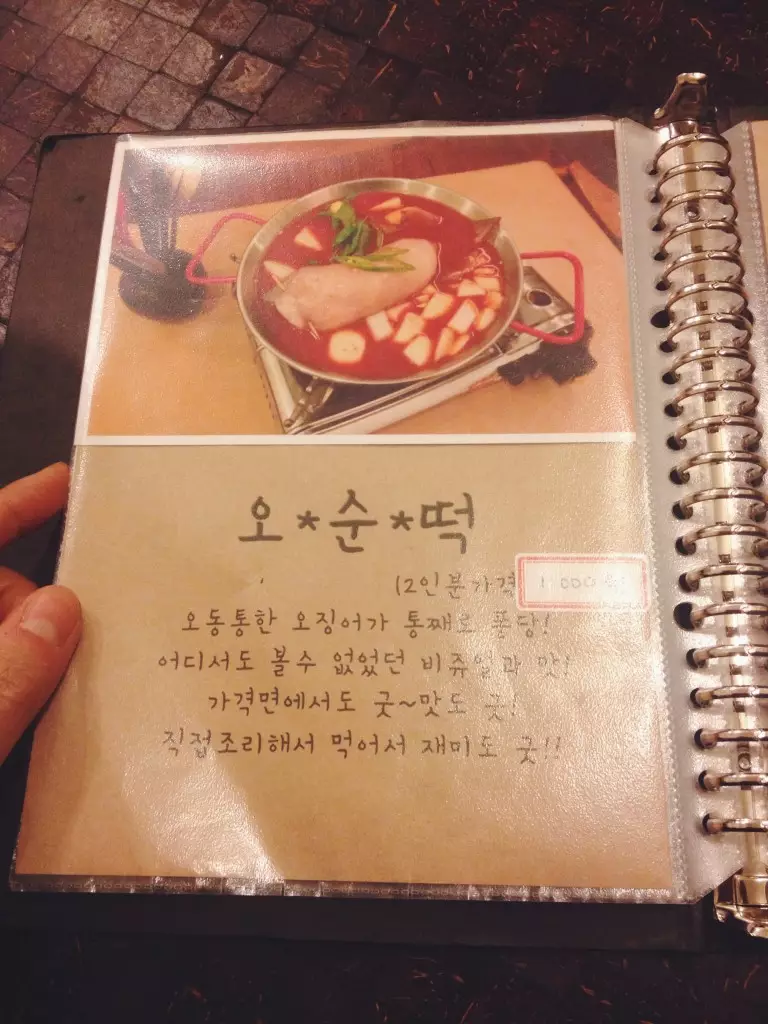 오*순*떡
(2인분가격
오동통한 오징어가 통째로 퐁당!
어디서도 볼수 없었던 비쥬얼과 맛!
가격면에서도 굿~맛도 굿!
직접조리해서 먹어서 재미도 굿!!